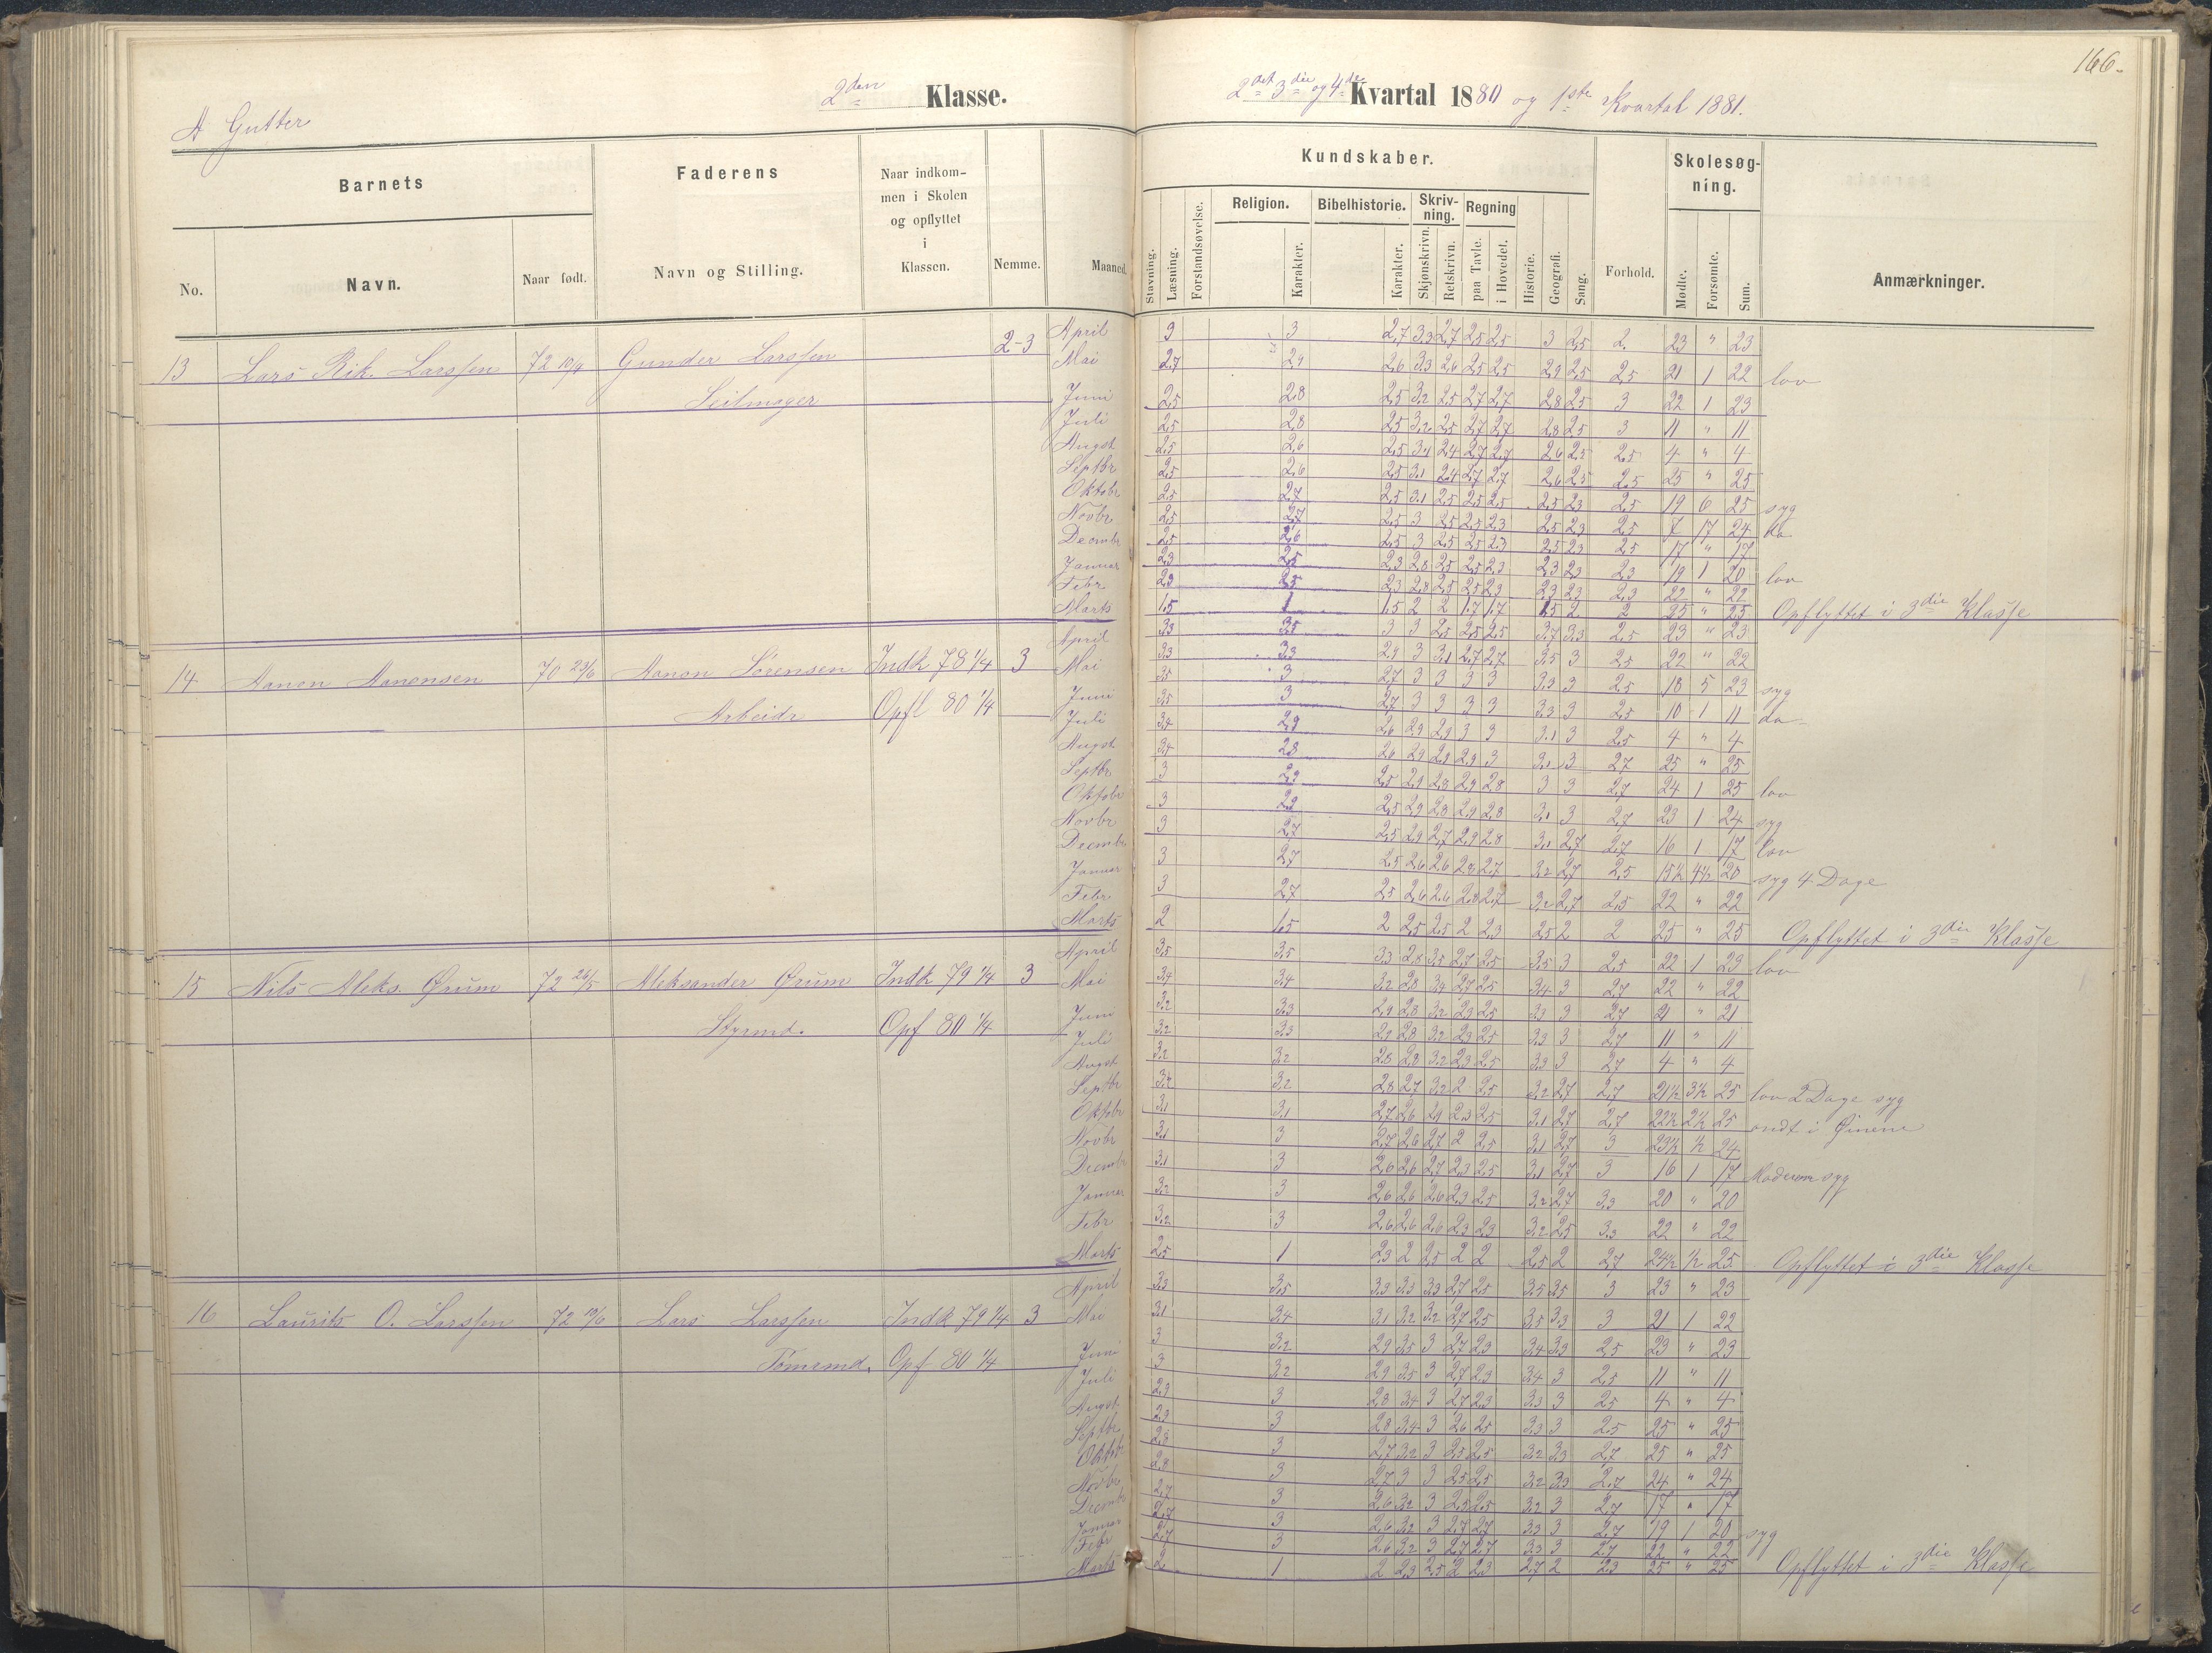 166.
2den Klasse.
2det 3die og 4de Kvartal 1880 og 1ste Kvartal 1881.
A Gutter
Barnets
Faderens
Naar indkommen i Skolen og opflyttet i Klassen.
Nemme.
Maaned.
No.
Navn.
Naar født.
Navn og Stilling.
Kundskaber.
Stavning.
Læsning.
Forstandsøvelse.
Religion.
Karakter.
Bibelhistorie.
Karakter.
Skrivning.
Skjønskrivn.
Retskrivn.
Regning
paa Tavle.
i Hovedet.
Historie.
Geografi.
Sang.
Forhold.
Skolesøgning.
Mødte.
Forsømte.
Sum.
Anmærkninger.
13 Lars Rik. Larssen 72 Gunder Larssen 2-3
Seilmager
April 3 3 2,7 3.3 2,7 2,5 2,5 3 2,5 2. 23 " 23
Mai 2,7 2,9 2,6 3.3 2,6 2,5 2,5 2,9 2,5 2,5 21 1 22 lov
Juni 2,5 2,8 2,5 3,2 2,5 2,7 2,7 2,8 2,5 3 22 1 23
Juli 2,5 2,8 2,5 3,2 2,5 2,7 2,7 2,8 2,5 3 11 " 11
Augst 2,5 2,6 2,5 3,1 2,4 2,7 2,7 2,6 2,5 2,5 4 " 4
Septbr 2,5 2,6 2,5 3,1 2,4 2,7 2,7 2,6 2,5 2,5 25 " 25
Oktobr 2,5 2,7 2,5 3,1 2,5 2,5 2,5 2,5 2,3 2,5 19 6 25 syg
Novbr 2,5 2,7 2,5 3 2,5 2,5 2,3 2,5 2,3 2,5 7 17 24 do
Decmbr 2,5 2,6 2,5 3 2,5 2,5 2,3 2,5 2,3 2,5 17 " 17
Januar 2,3 2,5 2,3 2,8 2,5 2,5 2,3 2,3 2,3 2,3 19 1 20 lov
Febr 2,3 2,5 2,3 2,8 2,5 2,5 2,3 2,3 2,3 2,3 22 " 22
Marts 1,5 1 1,5 2 2 1,7 1,7 1,5 2 2 25 " 25 Opflyttet i 3die Klasse
14 Aanon Aanonsen 70 23/6 Aanon Sørensen Indk 78 1/4 3
Arbeidr Opfl 80 1/4
April 3,3 3,5 3 3 2,5 2,5 2,5 3,7 3,3 2,5 23 " 23
Mai 3,3 3,3 2,9 3 3,1 2,7 2,7 3,5 3 2,5 22 " 22
Juni 3,5 3 2,7 3 3 3 3 3,3 3 2,5 18 5 23 syg
Juli 3,5 3 2,7 3 3 3 3 3,3 3 2,5 10 1 11 do
Augst 3,4 2,9 2,6 2,9 2,9 3 3 3,1 3 2,5 4 " 4
Septbr 3,4 2,8 2,6 2,9 2,9 2,9 3 3,1 3 2,7 25 " 25
Oktobr 3 2,9 2,5 2,9 2,8 2,9 2,8 3 3 2,7 24 1 25 lov
Novbr 3 2,9 2,5 2,9 2,8 2,9 2,8 3,1 3 2,7 23 1 24 syg
Decmbr 3 2,7 2,5 2,9 2,7 2,9 2,8 3,1 2,7 2,7 16 1 17 lov
Januar 3 2,7 2,5 2,6 2,6 2,8 2,7 3,2 2,7 2,5 15½ 4½ 20 syg 4 Dage
Febr 3 2,7 2,5 2,6 2,6 2,8 2,7 3,2 2,7 2,5 22 " 22
Marts 2 1,5 2 2,5 2,5 2 2,3 2,5 2 2 25 " 25 Opflyttet i 3die Klasse
15 Nils Aleks. Ørum 72 Aleksander Ørum Indk 79 1/4 3
Styrmd. Opf 80 1/4
April 3,5 3,5 3,3 2,8 3,5 2,7 2,5 3,5 3 2,5 22 1 23 lov
Mai 3,4 3,4 3,2 2,8 3,4 2,7 2,5 3,4 3 2,7 22 " 22
Juni 3,2 3,3 2,9 2,8 3,2 2,3 2,5 3,3 3 2,7 21 " 21
Juli 3,2 3,3 2,9 2,8 3,2 2,3 2,5 3,3 3 2,7 11 " 11
Augst 3,2 3,2 2,8 2,8 3,2 2,3 2,5 3,3 3 2,7 4 " 4
Septbr 3,2 3,2 2,8 2,7 3,2 2 2,5 3,2 2,7 2,7 21½ 3½ 25 lov 2 Dage syg
Oktobr 3,1 3,1 2,7 2,6 2,9 2,3 2,5 3,1 2,7 2,7 22½ 2½ 25 ondt i Øinene
Novbr 3,1 3 2,7 2,6 2,7 2 2,5 3,1 2,7 3 23½ ½ 24
Decmbr 3,1 3 2,6 2,6 2,7 2,3 2,5 3,1 2,7 3 16 1 17 Moderen syg
Januar 3,2 3 2,6 2,6 2,6 2,3 2,5 3,2 2,7 3,3 20 " 20
Febr 3,2 3 2,6 2,6 2,6 2,3 2,3 3,2 2,5 3,3 22 " 22
Marts 2,5 1 2,3 2 2,5 2 2 2,5 2 2,7 24½ ½ 25 Opflyttet i 3die Klasse
16 Laurits O. Larssen 72 Lars Larssen Indk 79 1/4 3
Tømrmd. Opf 80 1/4
April 3,3 3,5 3,3 3,3 3,3 2,7 2,5 3,5 3,5 3 23 " 23
Mai 3,1 3,4 3,1 3,2 3,2 2,7 2,5 3,5 3,3 3 21 1 22
Juni 3 3,2 2,9 3,5 3 2,7 2,3 3,4 3,3 2,5 23 " 23
Juli 3 3,2 2,9 3,5 3 2,7 2,3 3,4 3 2,5 11 " 11
Augst 2,9 3 2,8 3,4 3 2,7 2,3 3,3 3 2,5 4 " 4
Septbr 2,9 3 2,8 3,4 3 2,6 2,5 3,3 3 2,5 25 " 25
Oktbr 2,8 3 2,7 3,2 3 2,5 2,5 3,2 3,3 2,7 25 " 25
Novbr 2,8 3 2,7 3 3 2,5 2,5 3,2 3,3 2,7 24 " 24
Decmbr 2,7 3 2,6 3,2 3 2,5 2,5 3,2 3 2,7 17 " 17
Januar 2,7 3 2,6 3,2 3 2,7 2,7 3,3 3 2,7 19 1 20 syg
Febr 2,7 3 2,6 3,2 3 2,7 2,7 3,3 3 2,7 22 " 22
Marts 2 1 2 2,3 2,5 2 2,3 2,7 2 2,3 25 " 25 Opflyttet i 3die Klasse